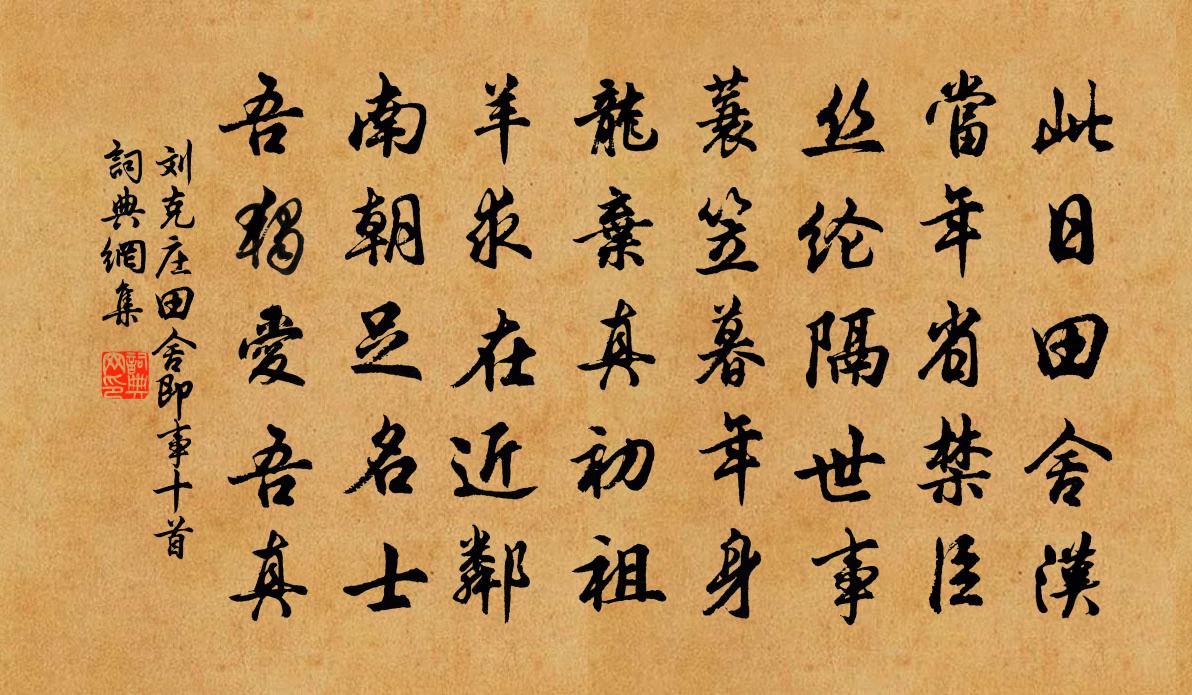 此日田舍漢
當年省禁臣
丝纶隔世事
蓑笠暮年身
龍棄真初祖
羊求在近鄰
南朝足名士
吾獨愛吾真
刘克庄田舍即事十首
詞典網集
詞典网印